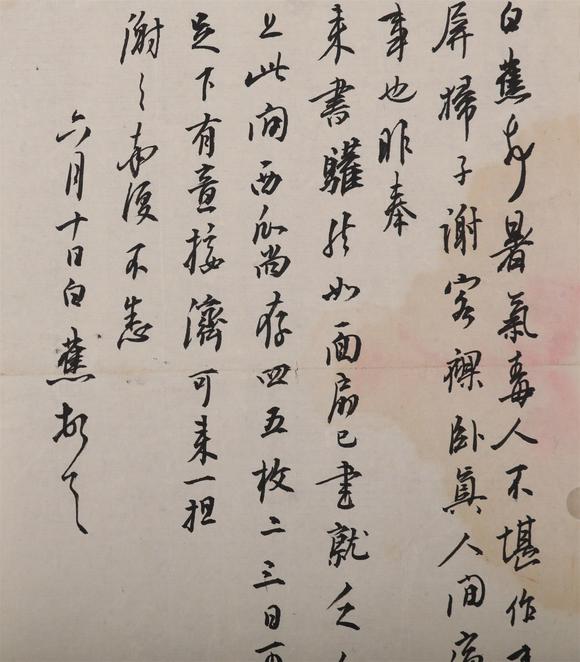 白蕉頓首暑氣毒人不堪作
屏掃子謝客裸卧真人间
事也昨奉
来書驩然如面扇已書就乏
上此间西瓜尚存四五枚二三日
足下有意接濟可来一担
謝々匆復不悉
六月十日白蕉